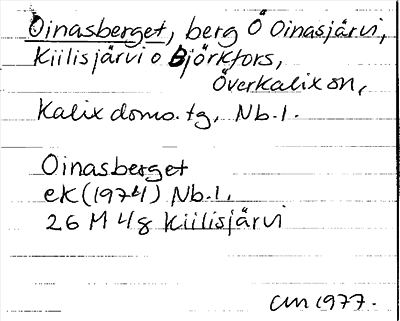 Oinasberget, berg Ö Oinasjärvi,
Kiilisjärvi o Björkfors,
Överkalix sn,
Kalix doms. tg, Nb. l.
Oinasberget
eK (1974) Nb. l.
26 M 4g Kiilisjärvi
CM 1977.